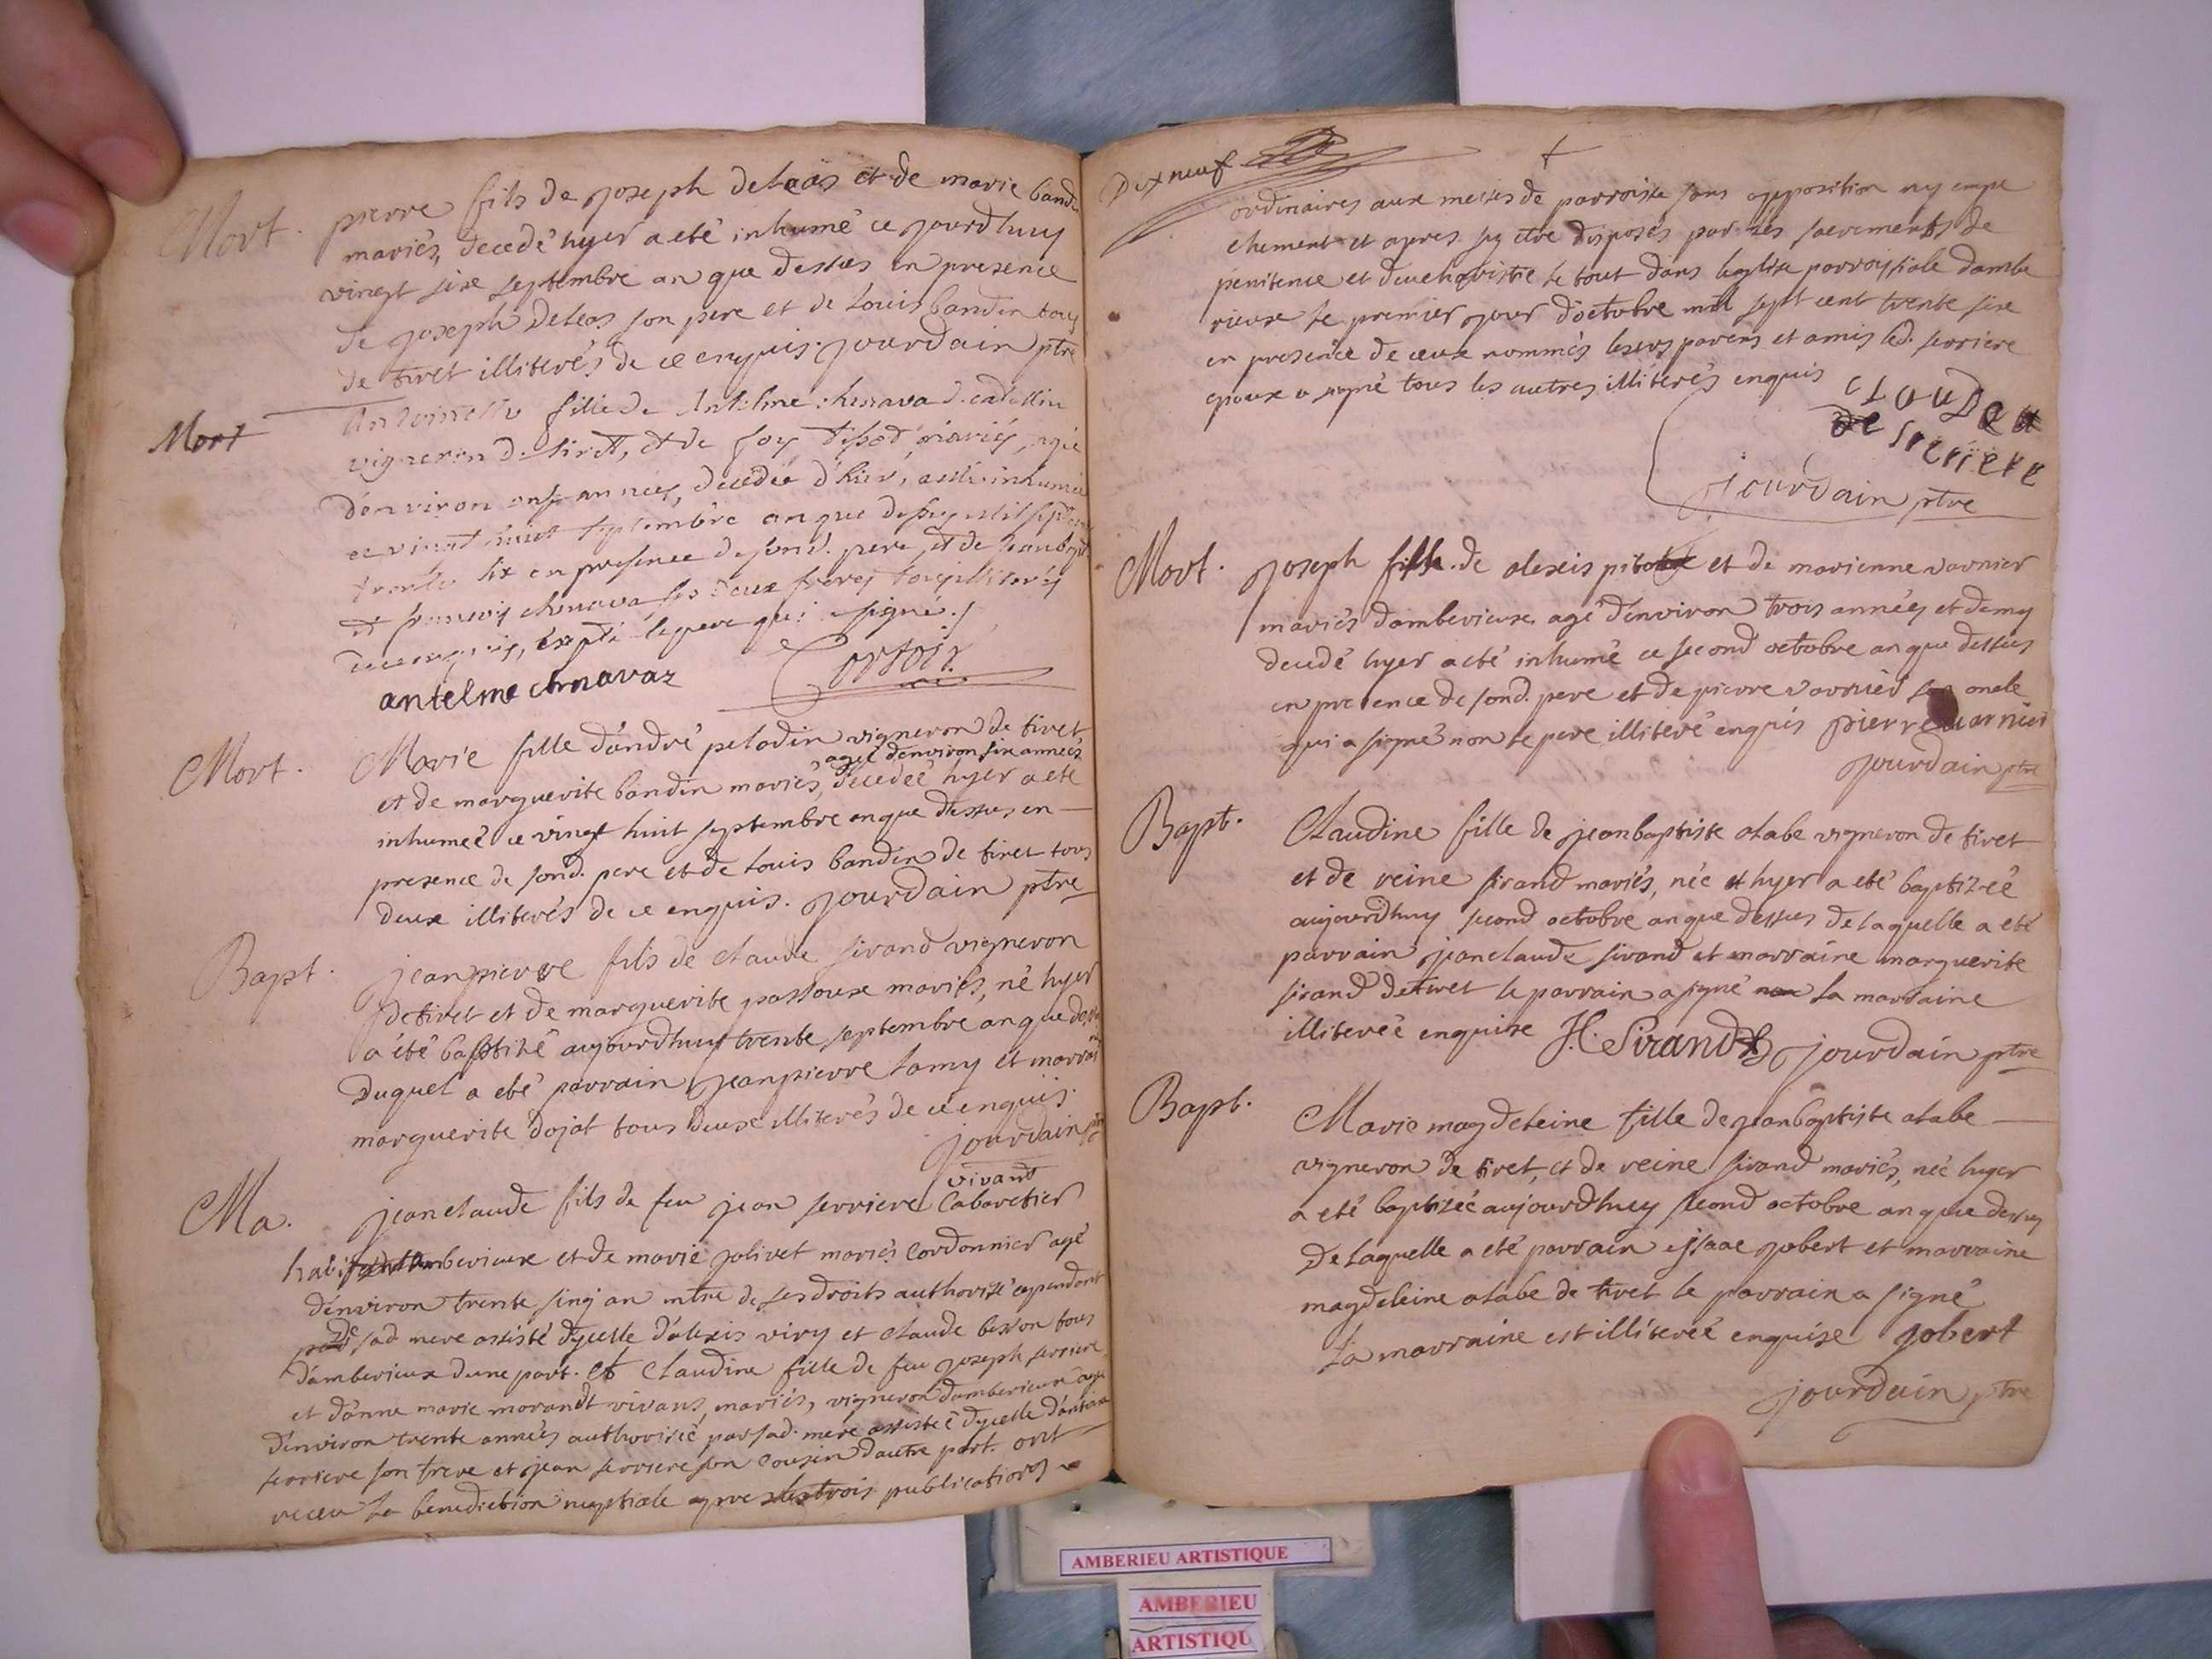 Mort. pierre fils de joseph deleas et de marie bandin
mariés, decedé hyer a eté inhumé ce jourdhuy
vingt sixe septembre an que dessus en presence
de joseph deleas son pere et de louis bandin tous
de tiret illiterés de ce enquis. jourdain ptre
Mort Antoinette fille de Antelme chenava d.
vigneron de tiret, et de foy mariés, agée
d'environ onze années, decedée d'hier, a eté inhumée
ce vingt huict septembre an que dessus mil sept cent
trente six en presence de sond. pere et de
et francois chenava ses deux freres tous illiterés
de ce enquis, excepté le pere qui a signé./.
antelme chnavaz
Mort. Marie fille d'andré pelodin vigneron de tiret
agée denviron sixe années
et de marguerite bandin mariés, decedée hyer a eté
inhumeé ce vingt huit septembre an que dessus en
presence de sond. pere et de louis bandin de tiret tous
deux illiterés de ce enquis. jourdain ptre
Bapt. jeanpierre fils de claude sirand vigneron
de tiret et de marguerite passoux mariés, né hyer
a été baptizé aujourdhuy trente septembre an que dessus
duquel a eté parrain jeanpierre lamy et marraine
marguerite dojat tous deux illiterés de ce enquis.
jourdain ptre
vivant
Ma. jeanclaude fils de feu jean serriere Cabaretier
habitant Amberieux et de marie jolivet mariés Cordonnier agé
d'environ trente sinq an mtre de ses droits authorisé cependant
de sad mere assisté dycelle d'alexis viry et claude besson tous
d'amberieux dune part. et Claudine fille de feu joseph serriere
et d'anne marie morandt vivans, mariés, vigneron damberieux agée
d'environ trente années authorisée par sad. mere assistée dycelle d'antoine
serriere son frere et jean serriere son Cousin d'autre part. ont
receu la benediction nuptiale apres les trois publications
Dixneuf
ordinaires aux messes de parroisse sans opposition ny empe
chement et apres sy etre disposés par les sacrements de
penitence et deucharistie le tout dans leglise parroissiale dambe
rieux le premier jour d'octobre mil sept cent trente sixe
en presence de ceux nommés leurs parens et amis led. serriere
epoux a signé tous les autres illiterés enquis
CLOUDE
De SIERIERE
jourdain ptre
Mort. joseph fils de alexis pitoux et de marienne varnier
mariés damberieux agé d'environ trois années et demy
decedé hyer a eté inhumé ce second octobre an que dessus
en presence de sond. pere et de pierre varnier son oncle
qui a signé non le pere illiteré enquis pierre varnier
jourdain ptre
Bapt. Claudine fille de jeanbaptiste alabe vigneron de tiret
et de reine sirand mariés, née hyer a eté baptizeé
aujourdhuy second octobre an que dessus de laquelle a eté
parrain jeanclaude sirand et marraine marguerite
sirand de tiret le parrain a signé non la marraine
illitereé enquise J.C. Sirand jourdain ptre
Bapt. Marie magdeleine fille de jeanbaptiste alabe
vigneron de tiret, et de reine sirand mariés, née hyer
a eté baptizée aujourdhuy second octobre an que dessus
de laquelle a eté parrain issaac jobert et marraine
magdeleine alabe de tiret le parrain a signé
la marraine est illitereé enquise jobert
jourdain ptre
AMBERIEU ARTISTIQUE
AMBERIEU
ARTISTIQU